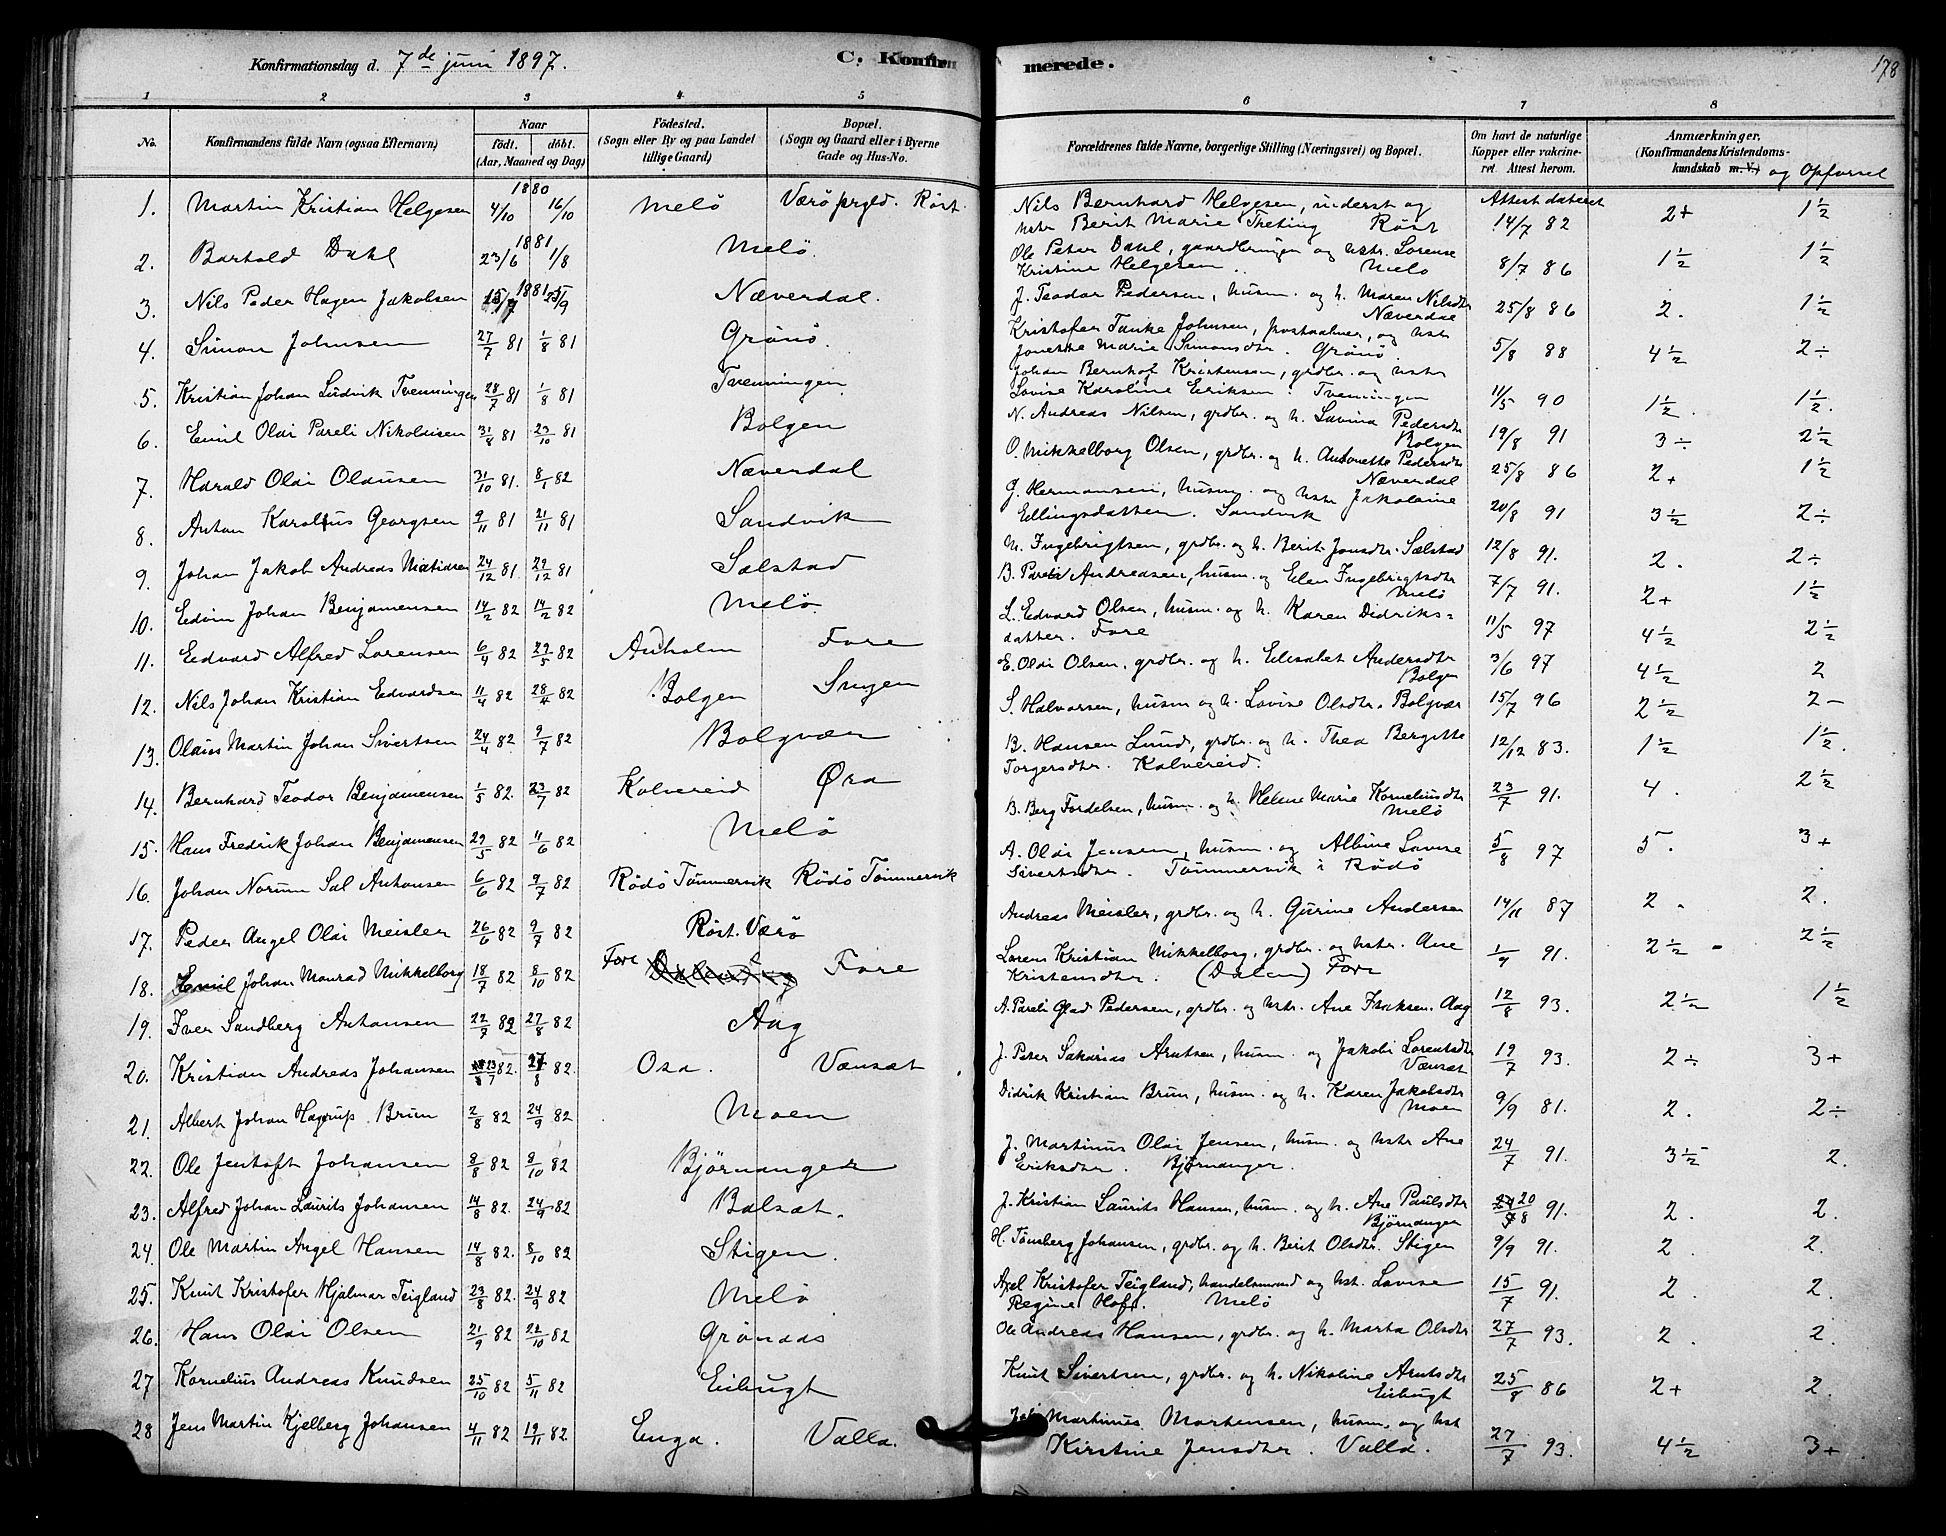 Konfirmationsdag d. 7de juni 1897. C. Konfir merede. 178
1 2 3 4 5 6 7 8
No. Konfirmandens fulde Navn (ogsaa Efternavn) Naar födt. döbt. (Aar, Maaned og Dag) Födested. (Sogn eller By og paa Landet tillige Gaard) Bopæl. (Sogn og Gaard eller i Byerne Gade og Hus-No. Forældrenes fulde Navne, borgerlige Stilling (Næringsvei) og Bopæl. Om havt de naturlige Kopper eller vakcineret. Attest herom. Anmærkninger. (Konfirmandens Kristendomskundskab m. V.) og Opförsel
1. Martin Kristian Helgesen 1880 4/10 16/10 Melö Værö prgld. Röst Nils Bernhard Helgesen, inderst og Attest dateret
hstr Berit Marie Röst 14/7 82 2+ 1½
2. Bartold Dahl 1881 23/6 1/8 Melö. Ole Peter Dahl, og hstr. Lorense
Kristine Helgesen. Melö 8/7 86 1½ 1½
3. Nils Peder Hagen Jakobsen 1881 Næverdal. J. Teodor Pedersen, husm. og h. Maren Nilsdtr
Næverdal 25/8 86 2. 1½
4. Simon Johnsen 27/7 81 1/8 81 Grönö. Kristofer Tanke Johnsen, og hstr
Marie Simonsdtr. Grönö. 5/8 88 4½ 2÷
5. Kristian Johan Ludvik Tvenningen 28/7 81 1/8 81 Tvenningen Johan Bernhof Kristensen, grdbr. og hstr
Lovise Karoline Eriksen. Tvenningen 11/5 90 1½. 1½.
6. Emil Oldi Pareli Nikolaisen 31/8 81 23/10 81 Bolgen N. Andreas Nilsen, grdbr. og h. Lavina Pedersdtr
Bolgen 19/8 91 3÷ 2½
7. Harald Oldi Olausen 31/10 81. 8/1 82 Næverdal O. Mikkelborg Olsen, grdbr. og h. Antonette Pedersdtr
Næverdal 25/8 86 2+ 1½
8. Anton Karolius Georgsen 9/11 81 21/11 81 Sandvik G. Hermansen, husm. og hstr Jakobine
Ellingsdatter. Sandvik 20/8 91 3½ 2÷
9. Johan Jakob Andreas 24/12 81. 29/12 81 Sælstad M. Ingebrigtsen, grdbr. og h. Berit Jonsdtr. Sælstad 12/8 91. 2. 2÷
10. Edvin Johan Benjamensen 14/2 82 14/2 82 Melö. B. Pareli Andreasen, husm. og Elen Ingebrigtsdtr
Melö 7/7 91. 2+ 1½
11. Edvard Alfred Lorensen 6/4 82 29/5 82 Anholm Fore L. Edvard Olsen, husm. og h. Karen Didriks=
datter. Fore 11/5 97 4½ 2½
12. Nils Johan Kristian Edvardsen 11/4 82 28/4 82 Bolgen E. Oldi Olsen, grdbr. og h. Elisabet Andersdtr
Bolgen 3/6 97 4½ 2
13. Olaus Martin Johan Sivertsen 24/4 82 9/7 82 Bolgvær S. Halvorsen, husm og h. Lovise Olsdtr. Bolgvær 15/7 96 2½ 2-
14. Bernhard Teodor Benjamensen 1/5 82. 23/7 82 Kalvereid Öra B. Hansen Lund, grdbr. og h. Thea Bergitte
Torgersdtr. Kalvereid. 12/12 83. 1½ 1½.
15. Hans Fredrik Johan Benjamensen 29/5 82 11/6 82 Melö B. Berg Fordelsen, husm. og h. Helene Marie Korneliusdtr
Melö 23/7 91. 4. 2½
16. Johan Norum Sal Antonsen 6/6 82 9/7 82 Rödö Tömmervik Rödö Tömmervik A. Oldi Jensen, husm. og Albine Lovise
Sivertsdtr. Tömmervik i Rödö 5/8 97 5. 3+
17. Peder Angel Oldi Meisler 26/6 82 9/7 82 Röst. Værö Andreas Meisler, grdbr. og h. Gurine Andersen 14/11 87 2. 2.
18. Emil Johan Monrad Mikkelborg 18/7 82 8/10 82 Fore Fore Lorens Kristian Mikkelborg, grdbr. og hstr. Ane
Kristensdtr. (Dalen) Fore 91. 2½ 2½
19. Iver Sandberg Antonsen 22/7 82 27/8 82 Aag A. Pareli Glad Pedersen, grdbr. og hstr. Ane Isaksen. Aag 12/8 93. 2½ 1½
20. Kristian Andreas Johansen 82. 82. Osa. Vænsæt J. Peter Sakarias Arntsen, husm. og Jakobi Lorentsdtr
Vænsæt 19/7 93. 2÷ 3+
21. Albert Johan Hagerup Brun 2/8 82 24/9 82 Moen Didrik Kristian Brun, husm. og h. Karen Jakobsdtr
Moen 9/9 81. 2. 2÷
22. Ole Jentoft Johansen 8/8 82 8/10 82 Björnanger J. Martinus Oldi Jensen, husm. og hstr Ane
Eriksdtr. Björnanger. 24/7 91. 3½ 2.
23. Alfred Johan Laurits Johansen 14/8 82. 24/9 82 Balsæt. J. Kristian Laurits Hansen, husm. og h. Ane Paulsdtr
Björnanger 20/8 91. 2. 2.
24. Ole Martin Angel Hansen 14/8 82. 8/10 82 Stigen. H. Tönsberg Johansen, grdbr. og h. Berit Olsdtr. Stigen 9/9 91. 2. 2.
25. Knut Kristofer Hjalmar Teigland 23/8 82. 24/9 82 Melö Axel Kristofer Teigland, handelsmand og hst. Lovise
Regine Melö 15/7 91. 2. 2.
26. Hans Oldi Olsen 21/9 82 22/10 82 Grönaas Ole Andreas Hansen, grdbr. og h. Marta Olsdtr 27/7 93. 2. 2.
27 Kornelius Andreas Knudsen 25/10 82 5/11 82 Eibugt Knut Sivertsen, grdbr. og h. Nikoline Arntsdtr
Eibugt 25/8 86 2+ 2.
28 Jens Martin Kjelberg Johansen 4/11 82 19/11 82. Enga. Valla. Martinus Mortensen, husm. og hst
Kirstine Jensdtr. Valla. 27/7 93. 4½ 3+